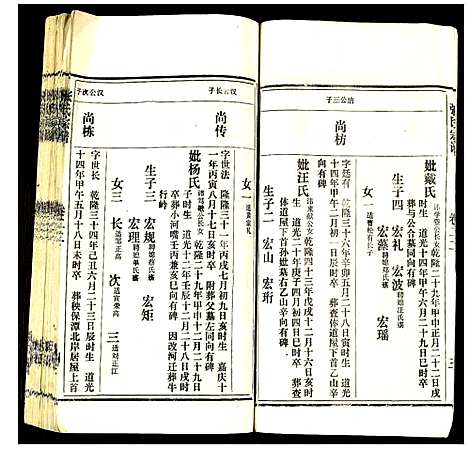 妣戴氏
乾隆二十九年甲申正月二十二日戌
时生 道光十四年甲午六月二十二日戌时卒
葬与公合墓同向有碑
生子四 宏礼 宏波
宏藻 宏瑶
女一
坊公三子
尚枋
字廷有 乾隆三十六年辛卯五月二十八日寅时生 道光
十四年甲午二月初一日辰时卒 葬查体道屋下首
有碑
妣汪氏
乾隆四十三年戊戌十二月十六日亥
时生 道光二十年庚子四月初四日戌时卒 葬查
体道屋下首孙媳墓右乙山辛向有碑
生子二 宏山 宏珩
汉公长子
尚传
字世法 乾隆三十一年丙戌七月初九日亥时生 嘉庆十
一年丙寅八月十七日亥时卒 附葬父墓左同向有碑
妣杨氏
乾隆二十九年甲申十二月二十九日
亥时生 道光十二年壬辰十二月二十八日寅时卒
葬小河嘴壬丙兼亥巳向有碑 因改河迁葬牛
行岭
生子三 宏规 宏矩
宏理
女一
汉公次子
尚栋
字世长 乾隆三十四年己丑六月二十三日辰时生 道光
十四年甲午五月十八日未时卒 葬秧保潭北岸居屋上首
女三 长 次 三